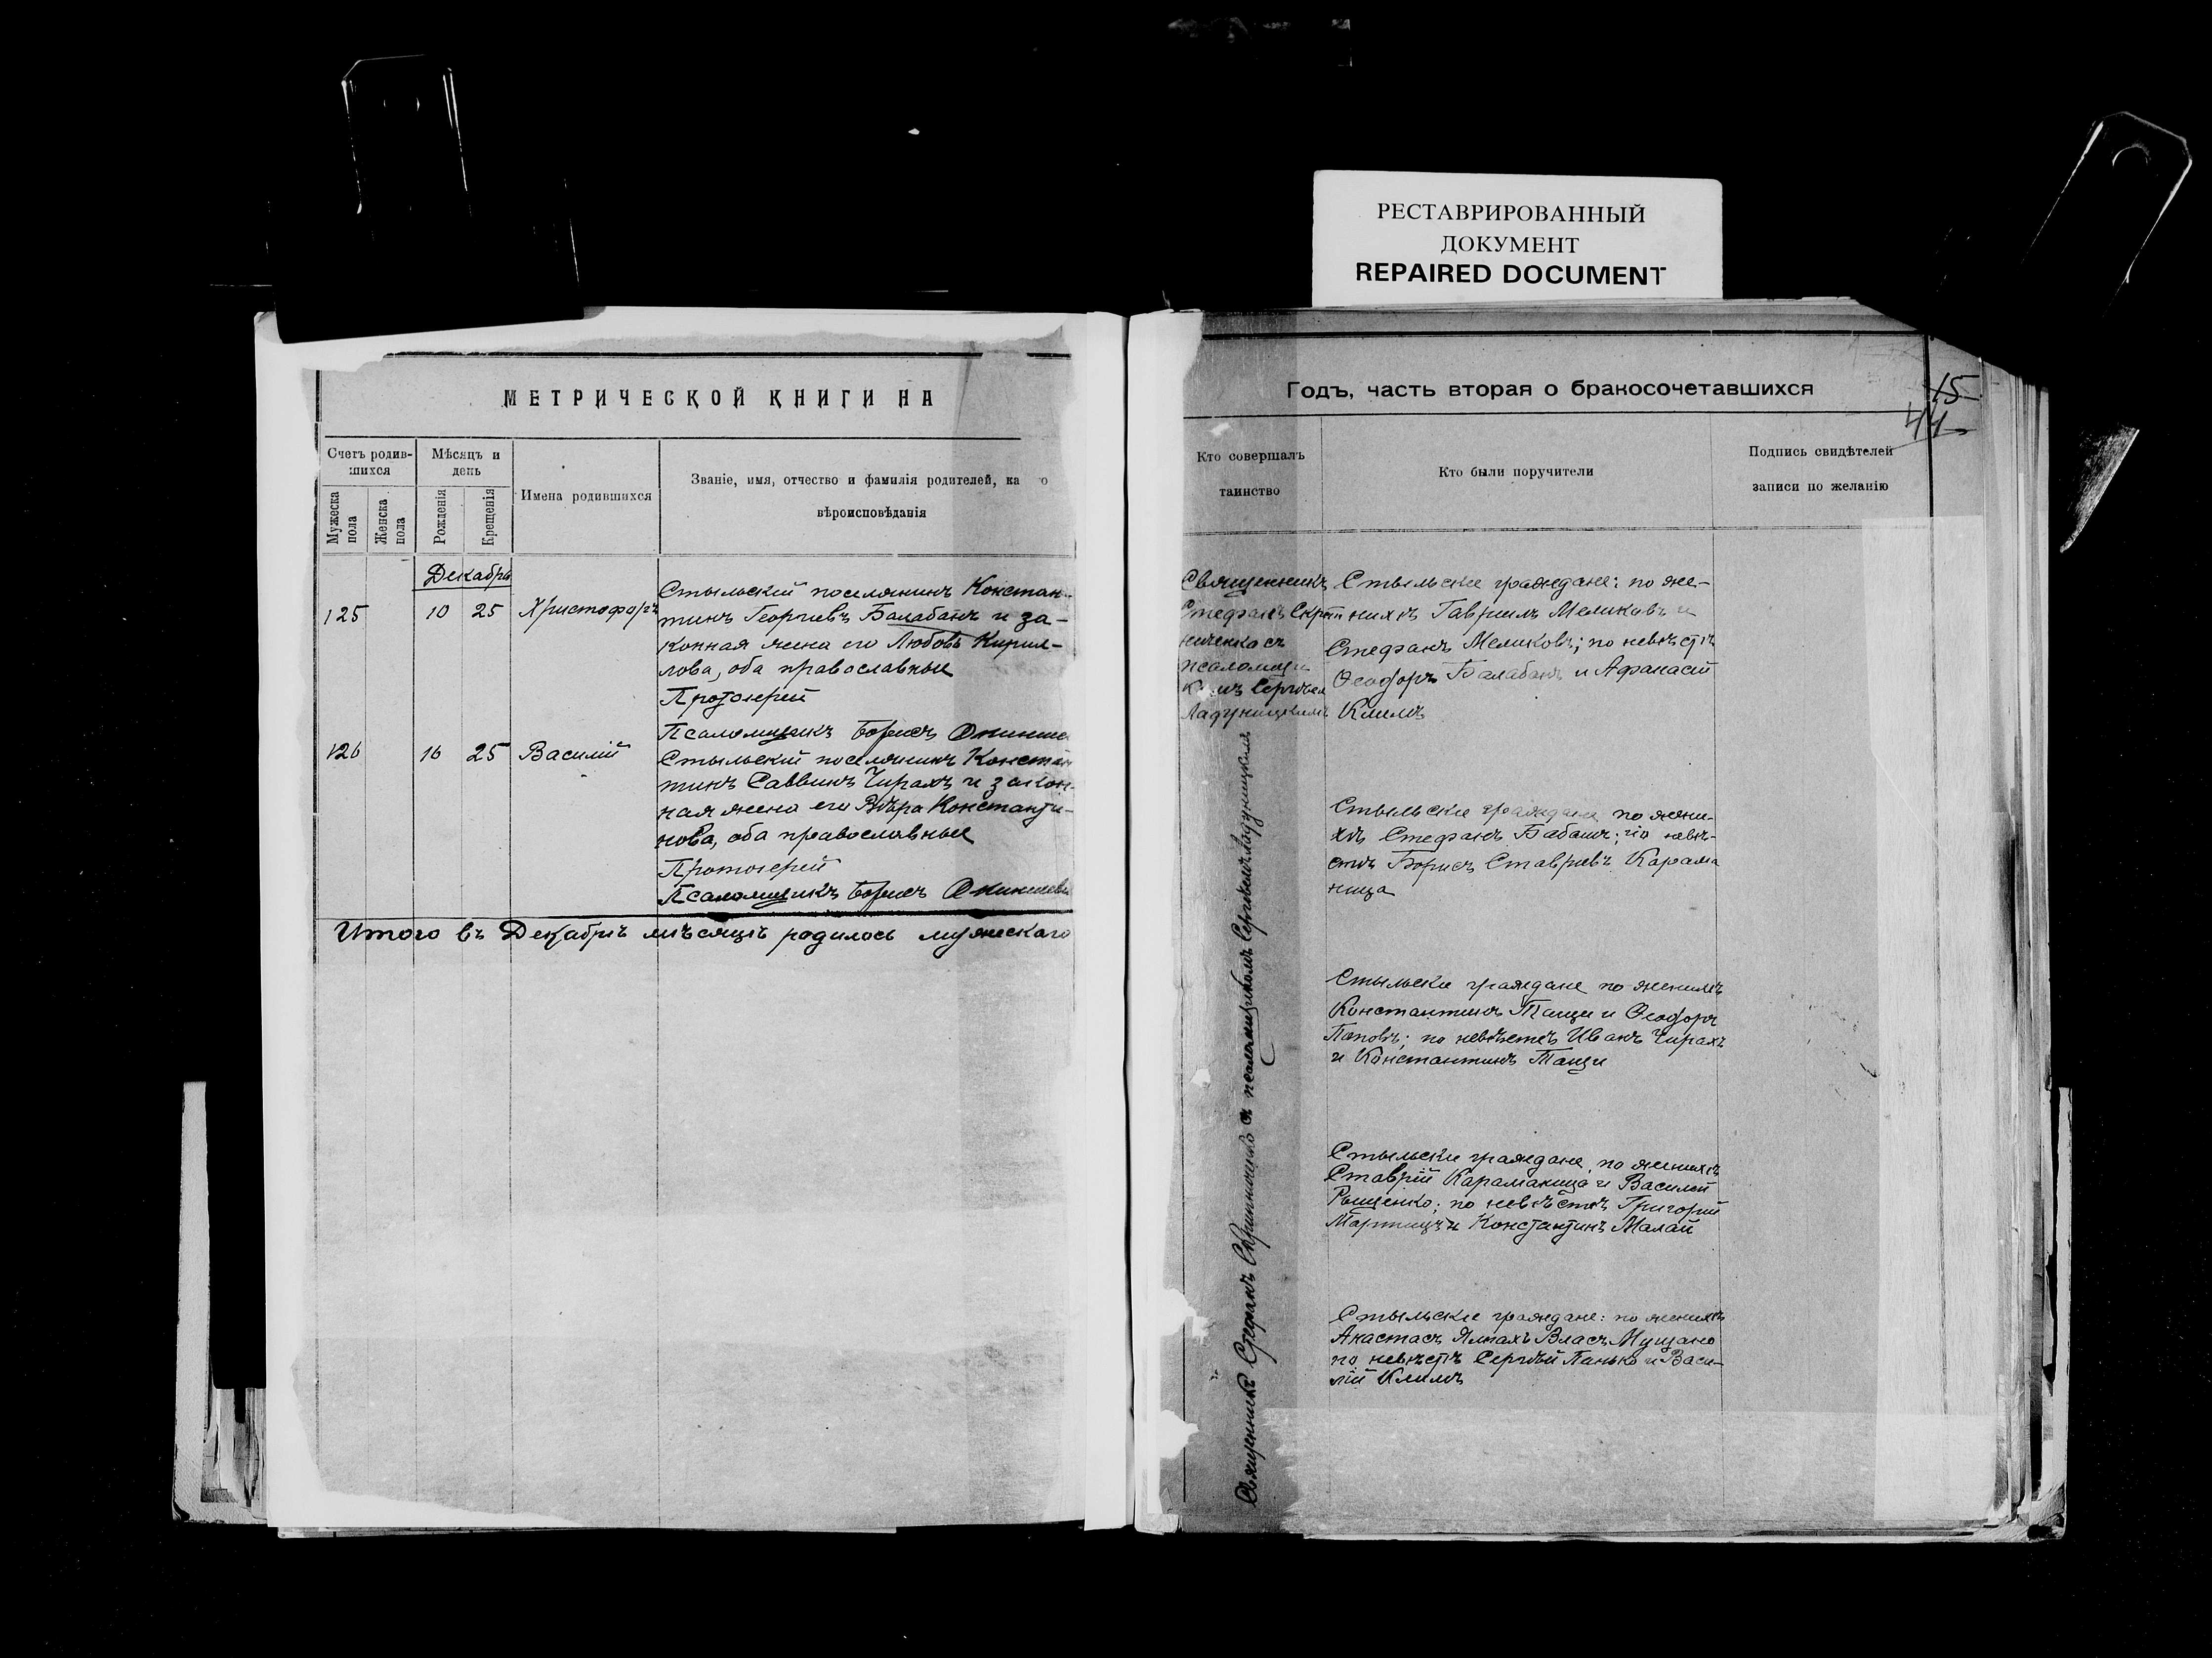 РЕСТАВРИРОВАННЫЙ
ДОКУМЕНТ
REPAIRED DOCUMENT
МЕТРИЧЕСКОЙ КНИГИ НА
Счетъ родив-
шихся
Мѣсяцъ и
день
Мужеска
пола
Женска
пола
Рожденія
Крещенія
Имена родившихся
Званіе, имя, отчество и фамилія родителей, ка о
вѣроисповѣданія
Декабрь
125 10 25 Христофоръ
Стыльскій поселянинъ Констан-
тинъ Георгіевъ Балабанъ и за-
конная жена его Любовь Кирил-
лова, оба православные
Протоіерей
Псаломщикъ Борисъ
126 16 25 Василій
Стыльскій поселянинъ Констан
тинъ Саввинъ Чирахъ и закон-
ная жена его Вѣра Константи-
нова, оба православные
Протоіерей
Псаломщикъ Борисъ
Итого въ Декабрѣ мѣсяцѣ родилось мужескаго
Годъ, часть вторая о бракосочетавшихся
15
44
Кто совершалъ
таинство
Кто были поручители
Подпись свидѣтелей
записи по желанію
Священникъ
Стефанъ Скрып
ниченко съ
псаломщи
комъ Сергіемъ
Ладуницкимъ
Стыльскіе граждане: по же-
нихѣ Гавриилъ Меликовъ и
Стефанъ Меликовъ; по невѣстѣ
Ѳеодоръ Балабанъ и Афанасій
Климъ
Стыльскіе граждане по жени-
хѣ Стефанъ Бабашъ; по невѣ-
стѣ Борисъ Ставріевъ Карама
ница
Стыльскіе граждане по женихѣ
Константинъ Тащи и Ѳеодоръ
Поповъ; по невѣстѣ Иванъ Чирахъ
и Константинъ Тащи
Стыльскіе граждане, по женихѣ
Ставрій Караманица и Василій
Рыщенко; по невѣстѣ Григорій
и Константинъ Малай
Стыльскіе граждане: по женихѣ
Анастасъ Ялпахъ Власъ
по невѣстѣ Сергѣй Панько и Васи-
лій Климъ
Священникъ Стефанъ Скрыпниченко съ псаломщикомъ Сергіемъ Ладуницкимъ